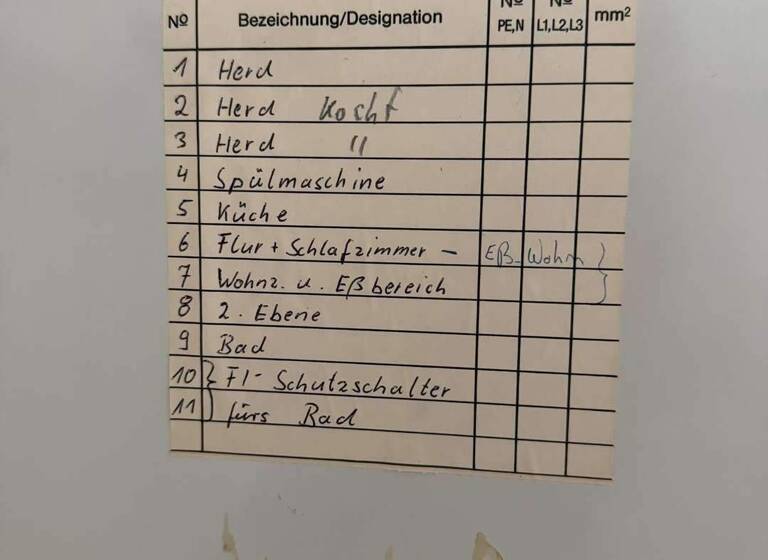 Nº Bezeichnung/Designation Nº PE,N Nº L1,L2,L3 mm²
1 Herd
2 Herd Kocht
3 Herd "
4 Spülmaschine
5 Küche
6 Flur + Schlafzimmer – Eß-Wohn
7 Wohnz. u. Eßbereich
8 2. Ebene
9 Bad
10 FI- Schutzschalter
11 fürs Bad